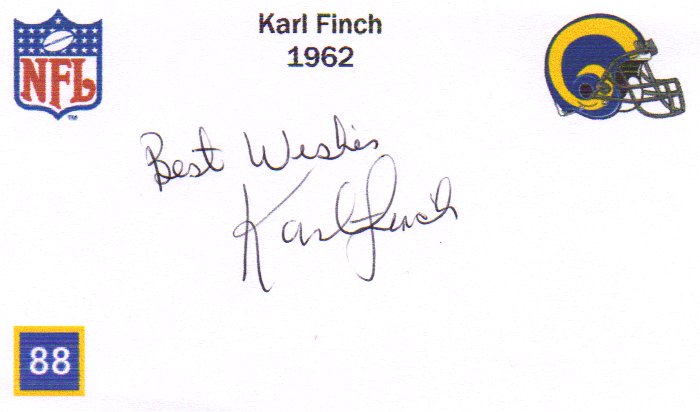 Karl Finch
1962
NFL
TM
Best Wishes
Karl Finch
88